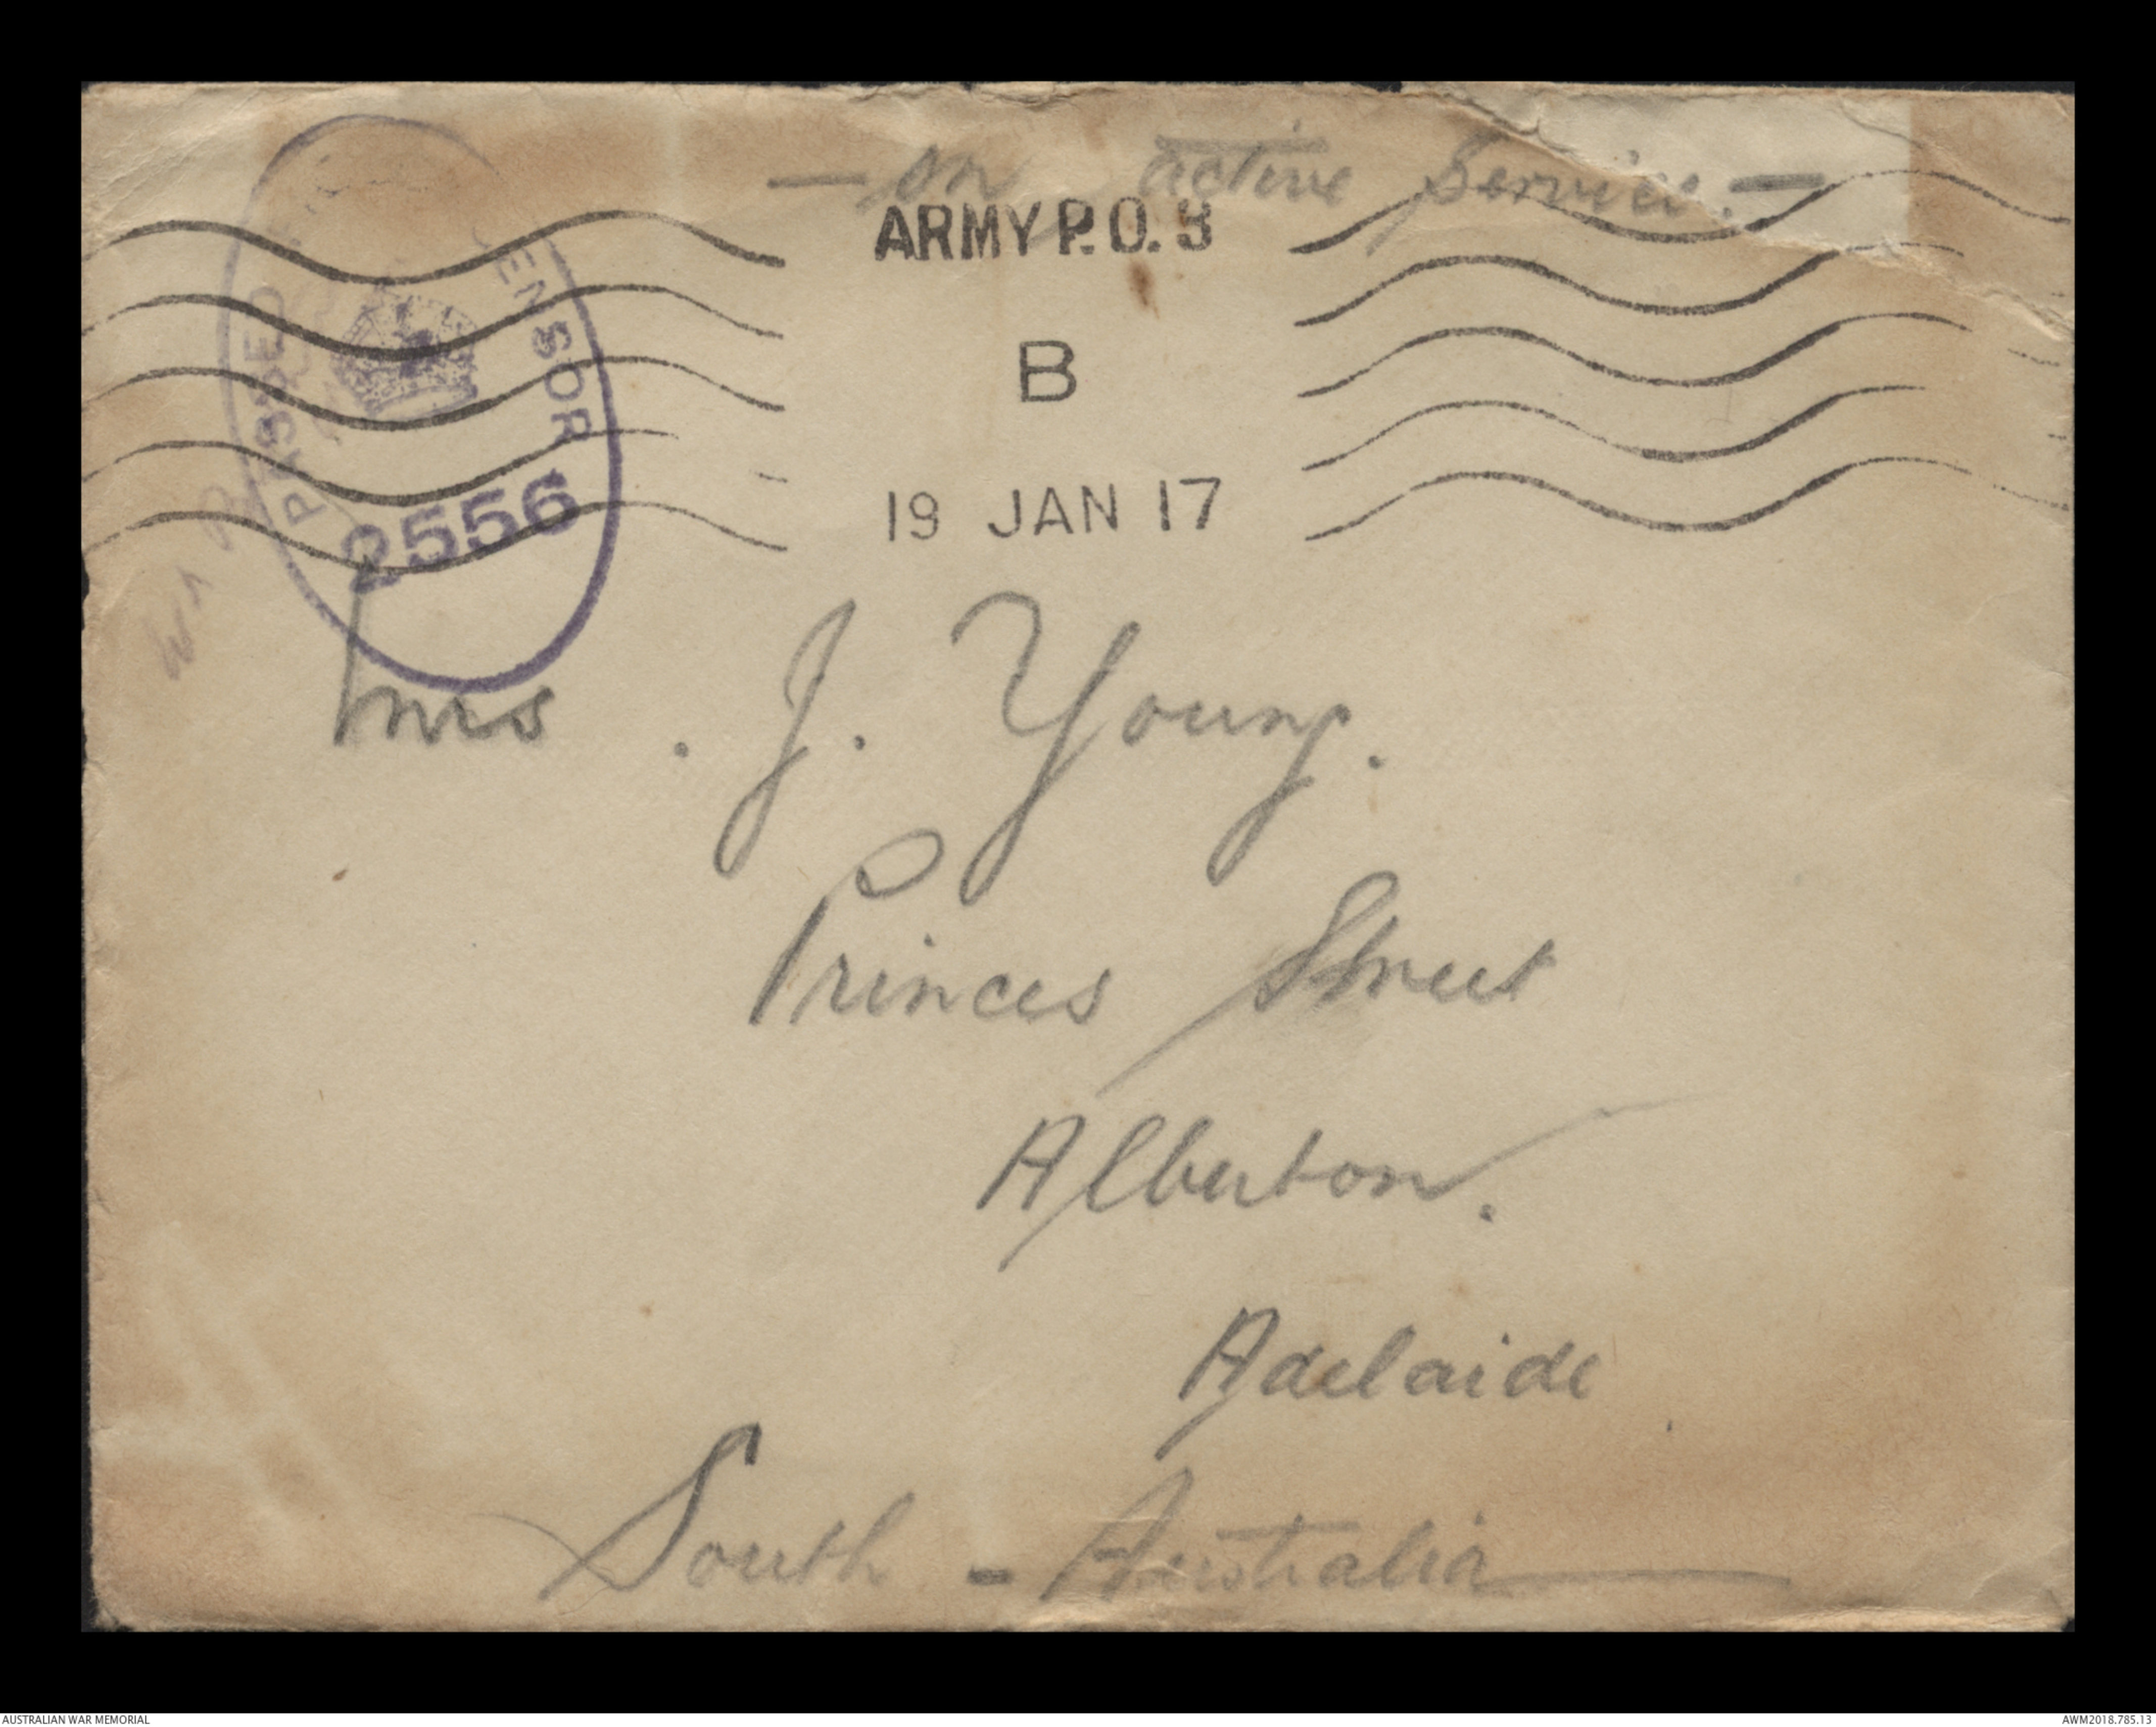 — On active Service. —
ARMY P.O. 3
PASSED CENSOR
2556
B
19 JAN 17
Mrs. J. Young.
Princes Street
Alberton.
Adelaide
South - Australia
AUSTRALIAN WAR MEMORIAL
AWM2018.785.13